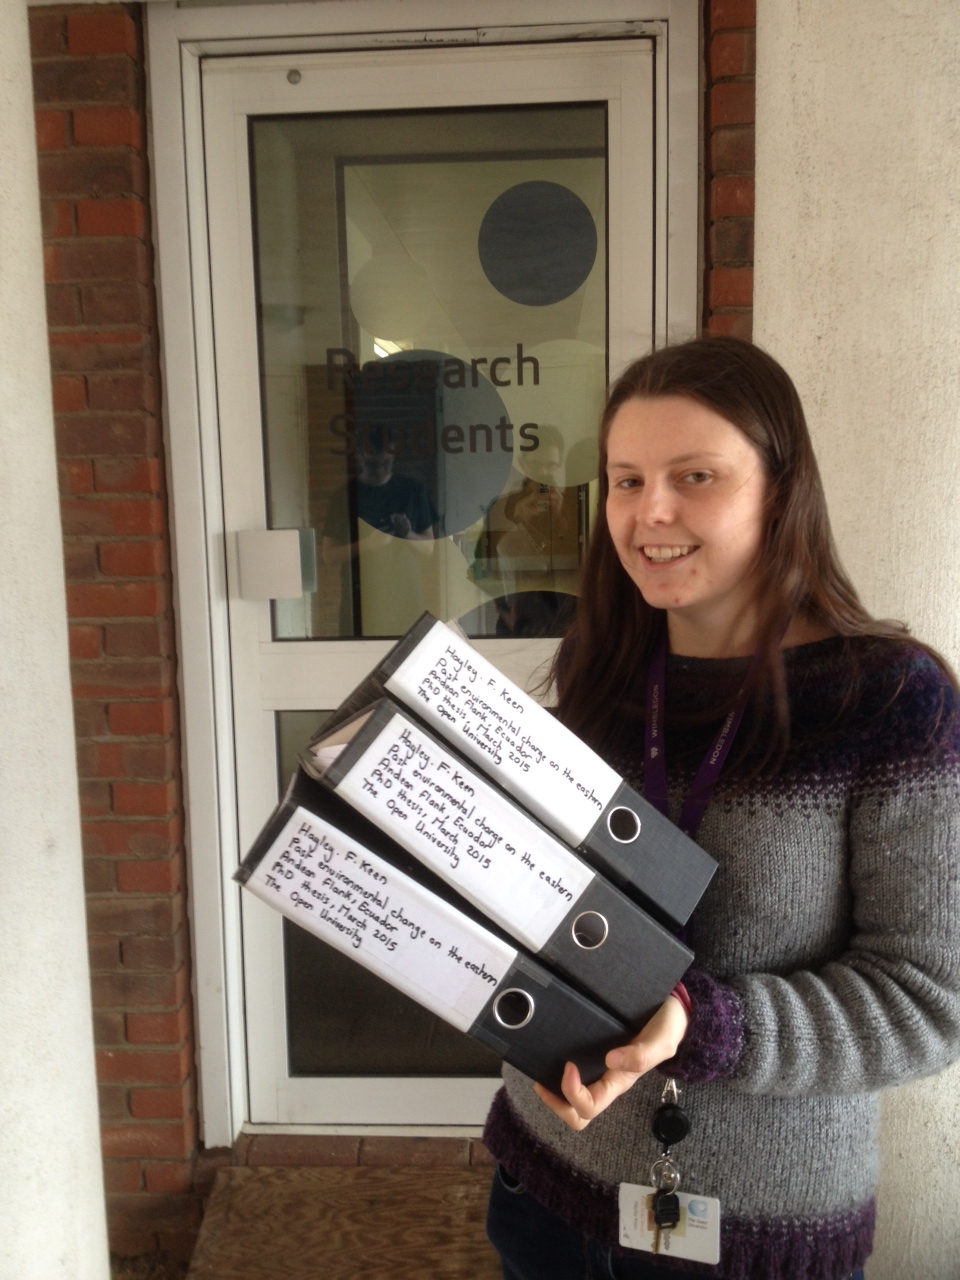 Research
Students
Hayley. F. Keen
Past environmental change on the eastern
Andean Flank, Ecuador
PhD thesis, March 2015
The Open University
Hayley. F. Keen
Past environmental change on the eastern
Andean Flank, Ecuador
PhD thesis, March 2015
The Open University
Hayley. F. Keen
Past environmental change on the eastern
Andean Flank, Ecuador
PhD thesis, March 2015
The Open University
WIMBLEDON
WIMBLEDON
The Open
University